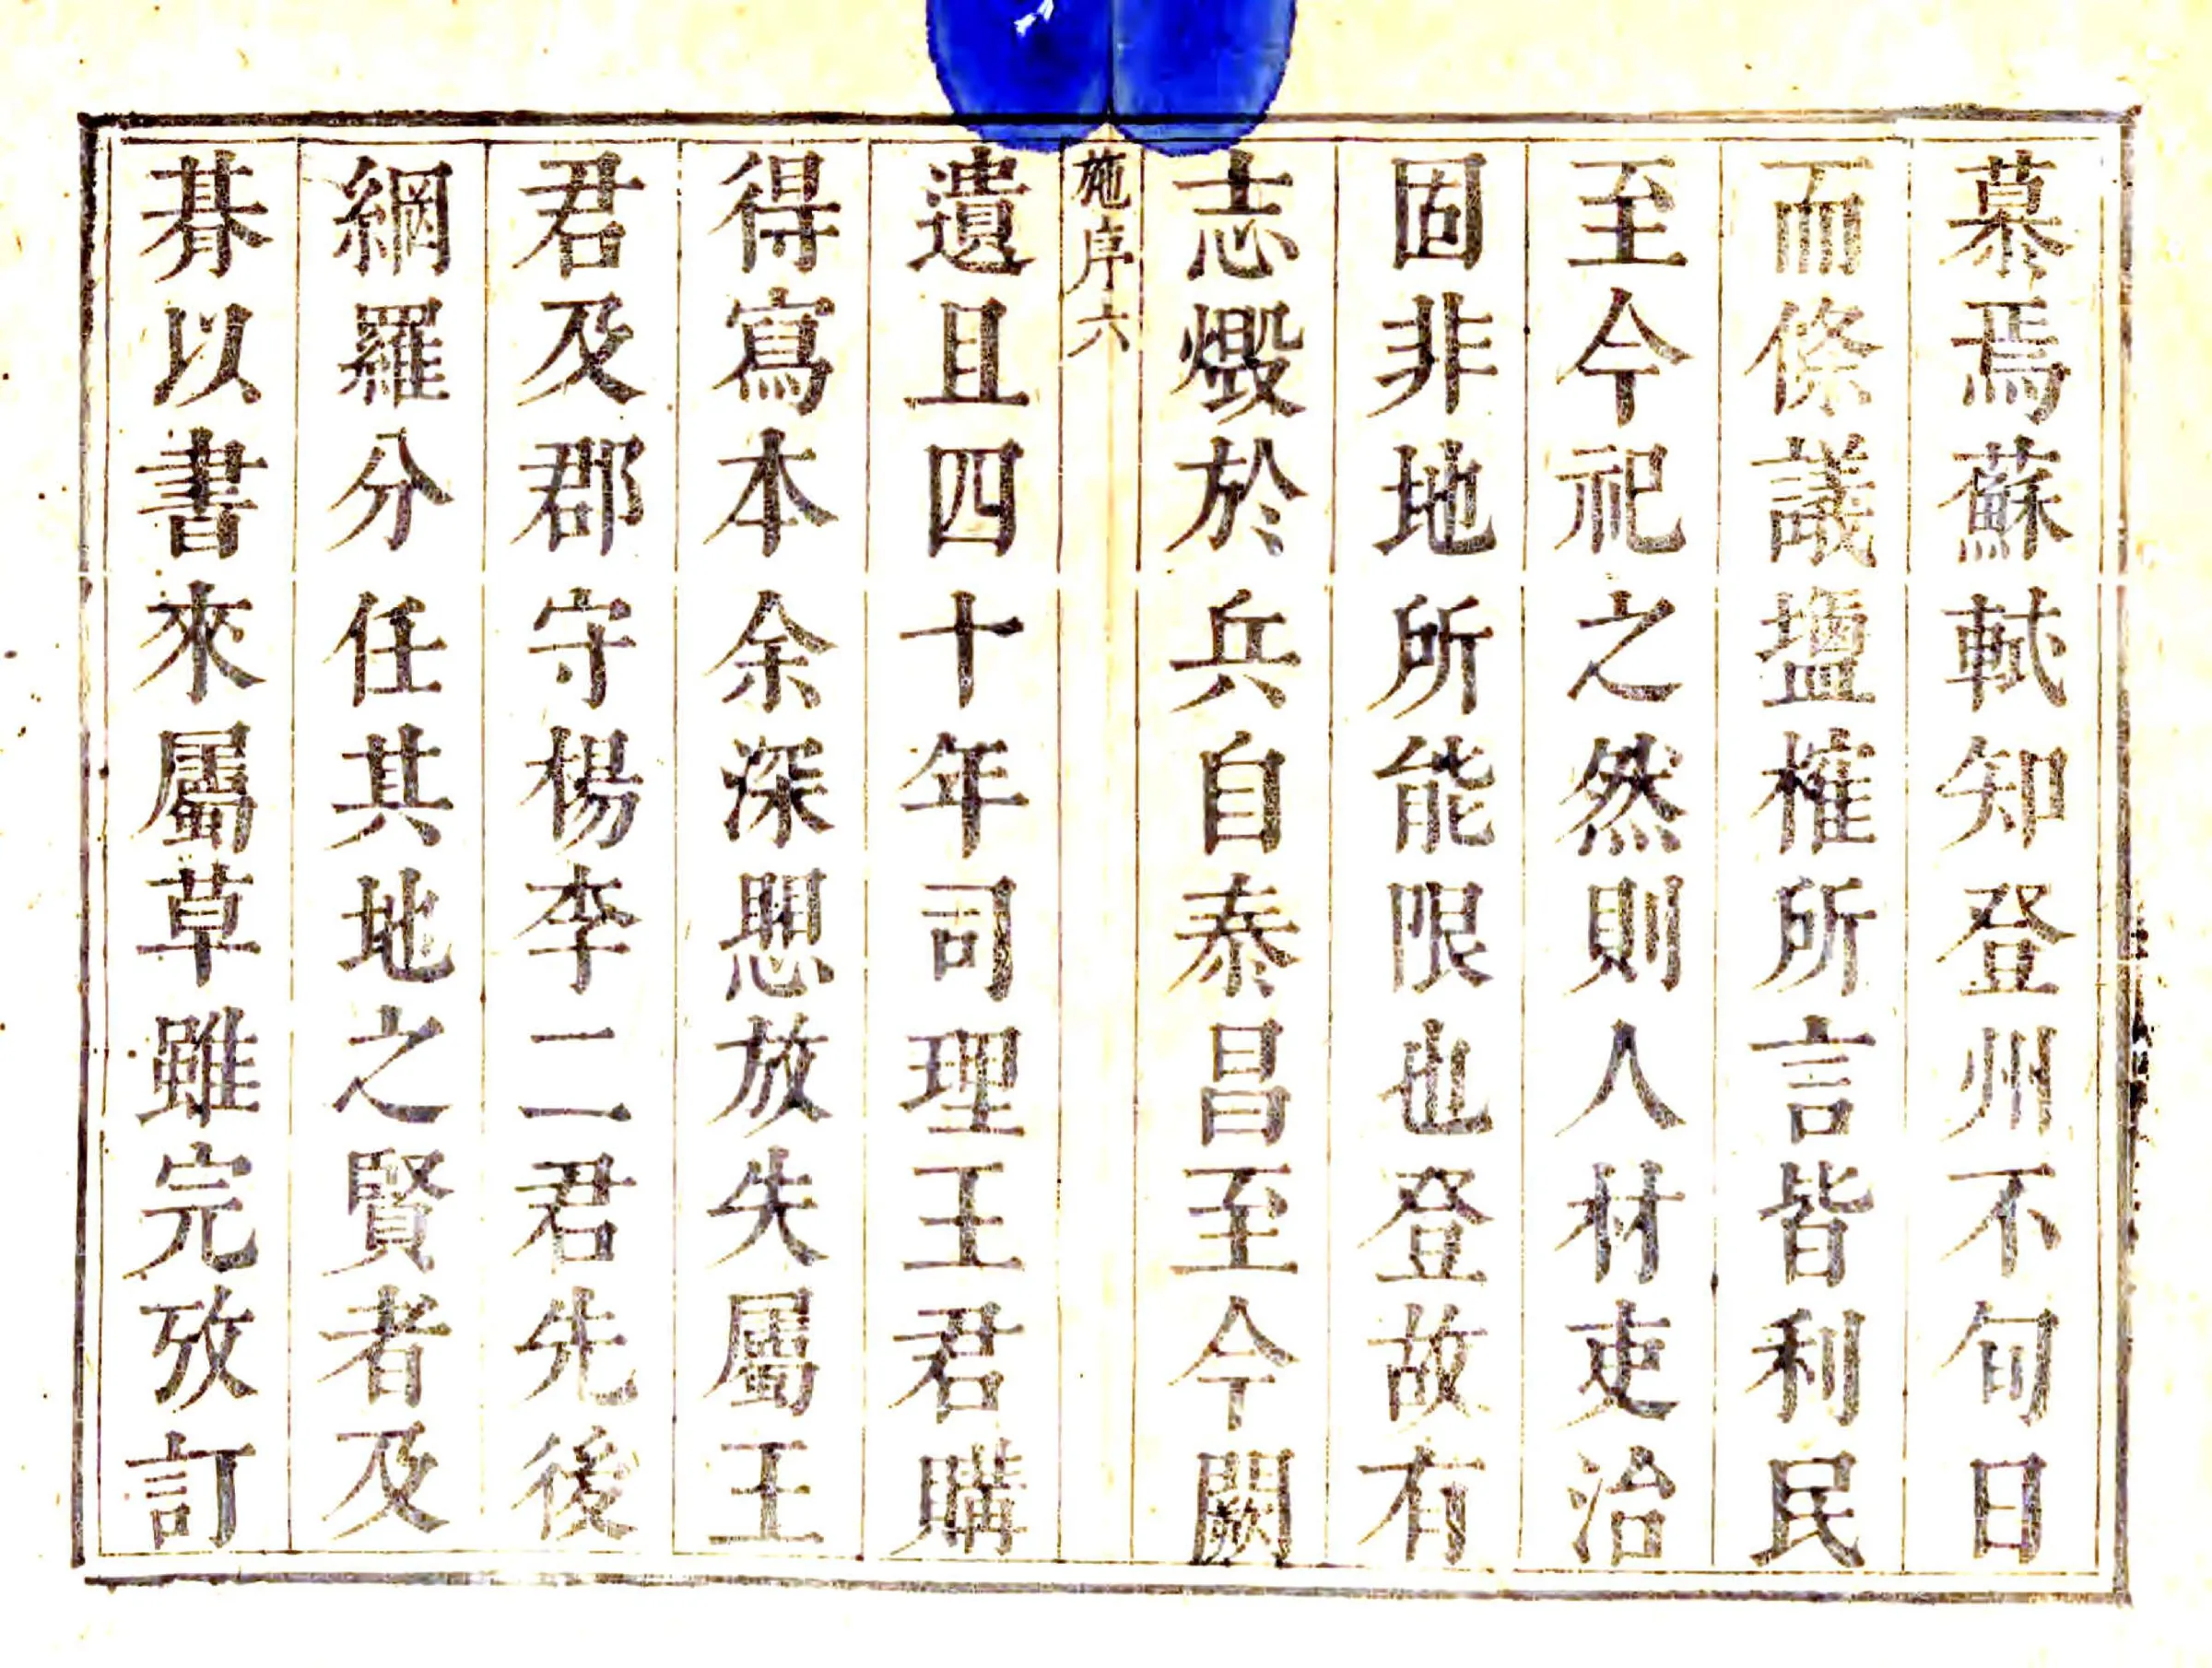 慕焉蘇軾知登州不旬日
而條議塩榷所言皆利民
至今祀之然則人材吏治
固非地所能限也登故有
志燬於兵自泰昌至今闕
施序六
遺且四十年司理王君購
得寫本余深愳放失屬王
君及郡守楊李二君先後
網羅分任其地之賢者及
朞以書來屬草雖完攷訂